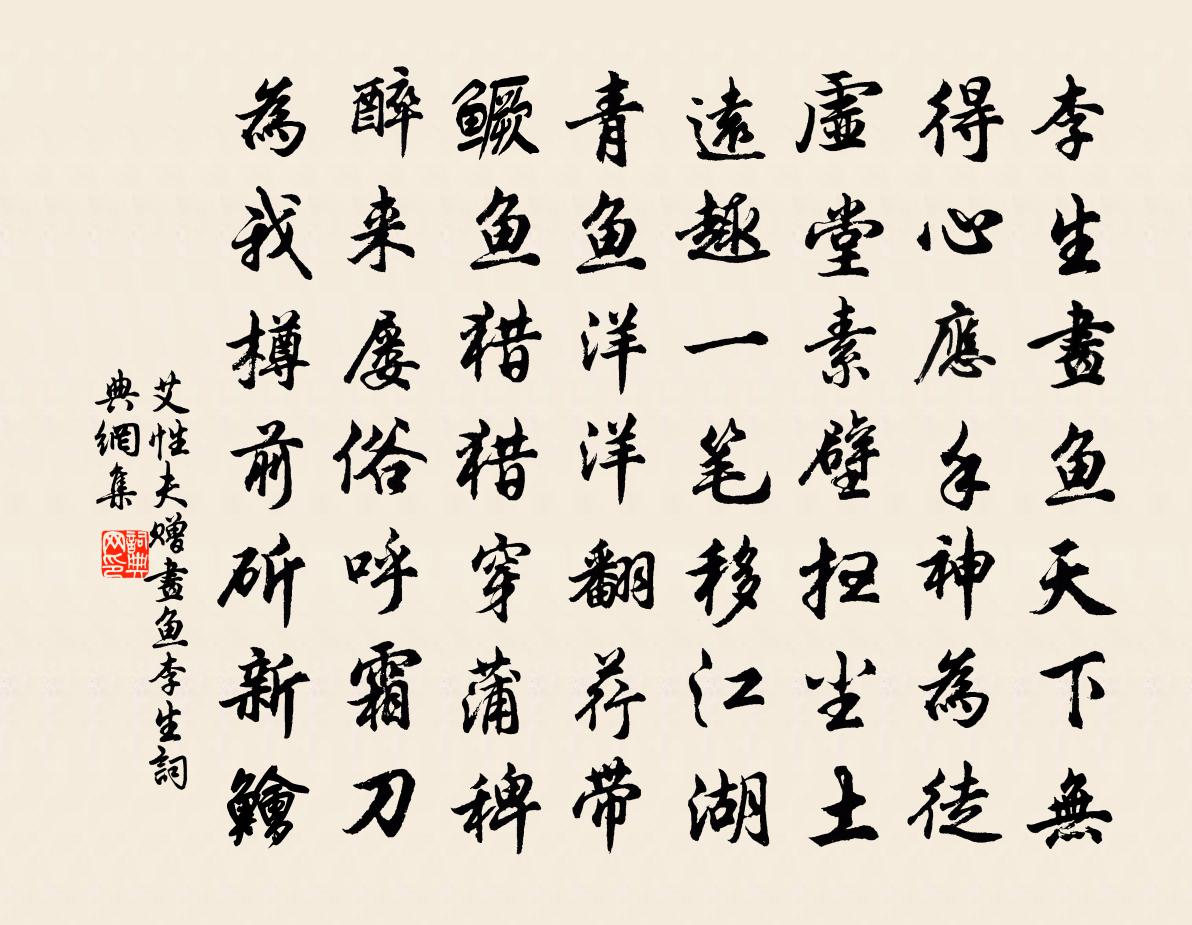 李生畫鱼天下無
得心應手神為徒
虚堂素壁抂坐土
遠趣一笔移江湖
青鱼洋洋翻荇带
鳜鱼猎猎穿蒲稗
醉来屡俗呼霜刀
為我樽前斫新鱠
艾性夫赠畫鱼李生詞
典網集
詞典网